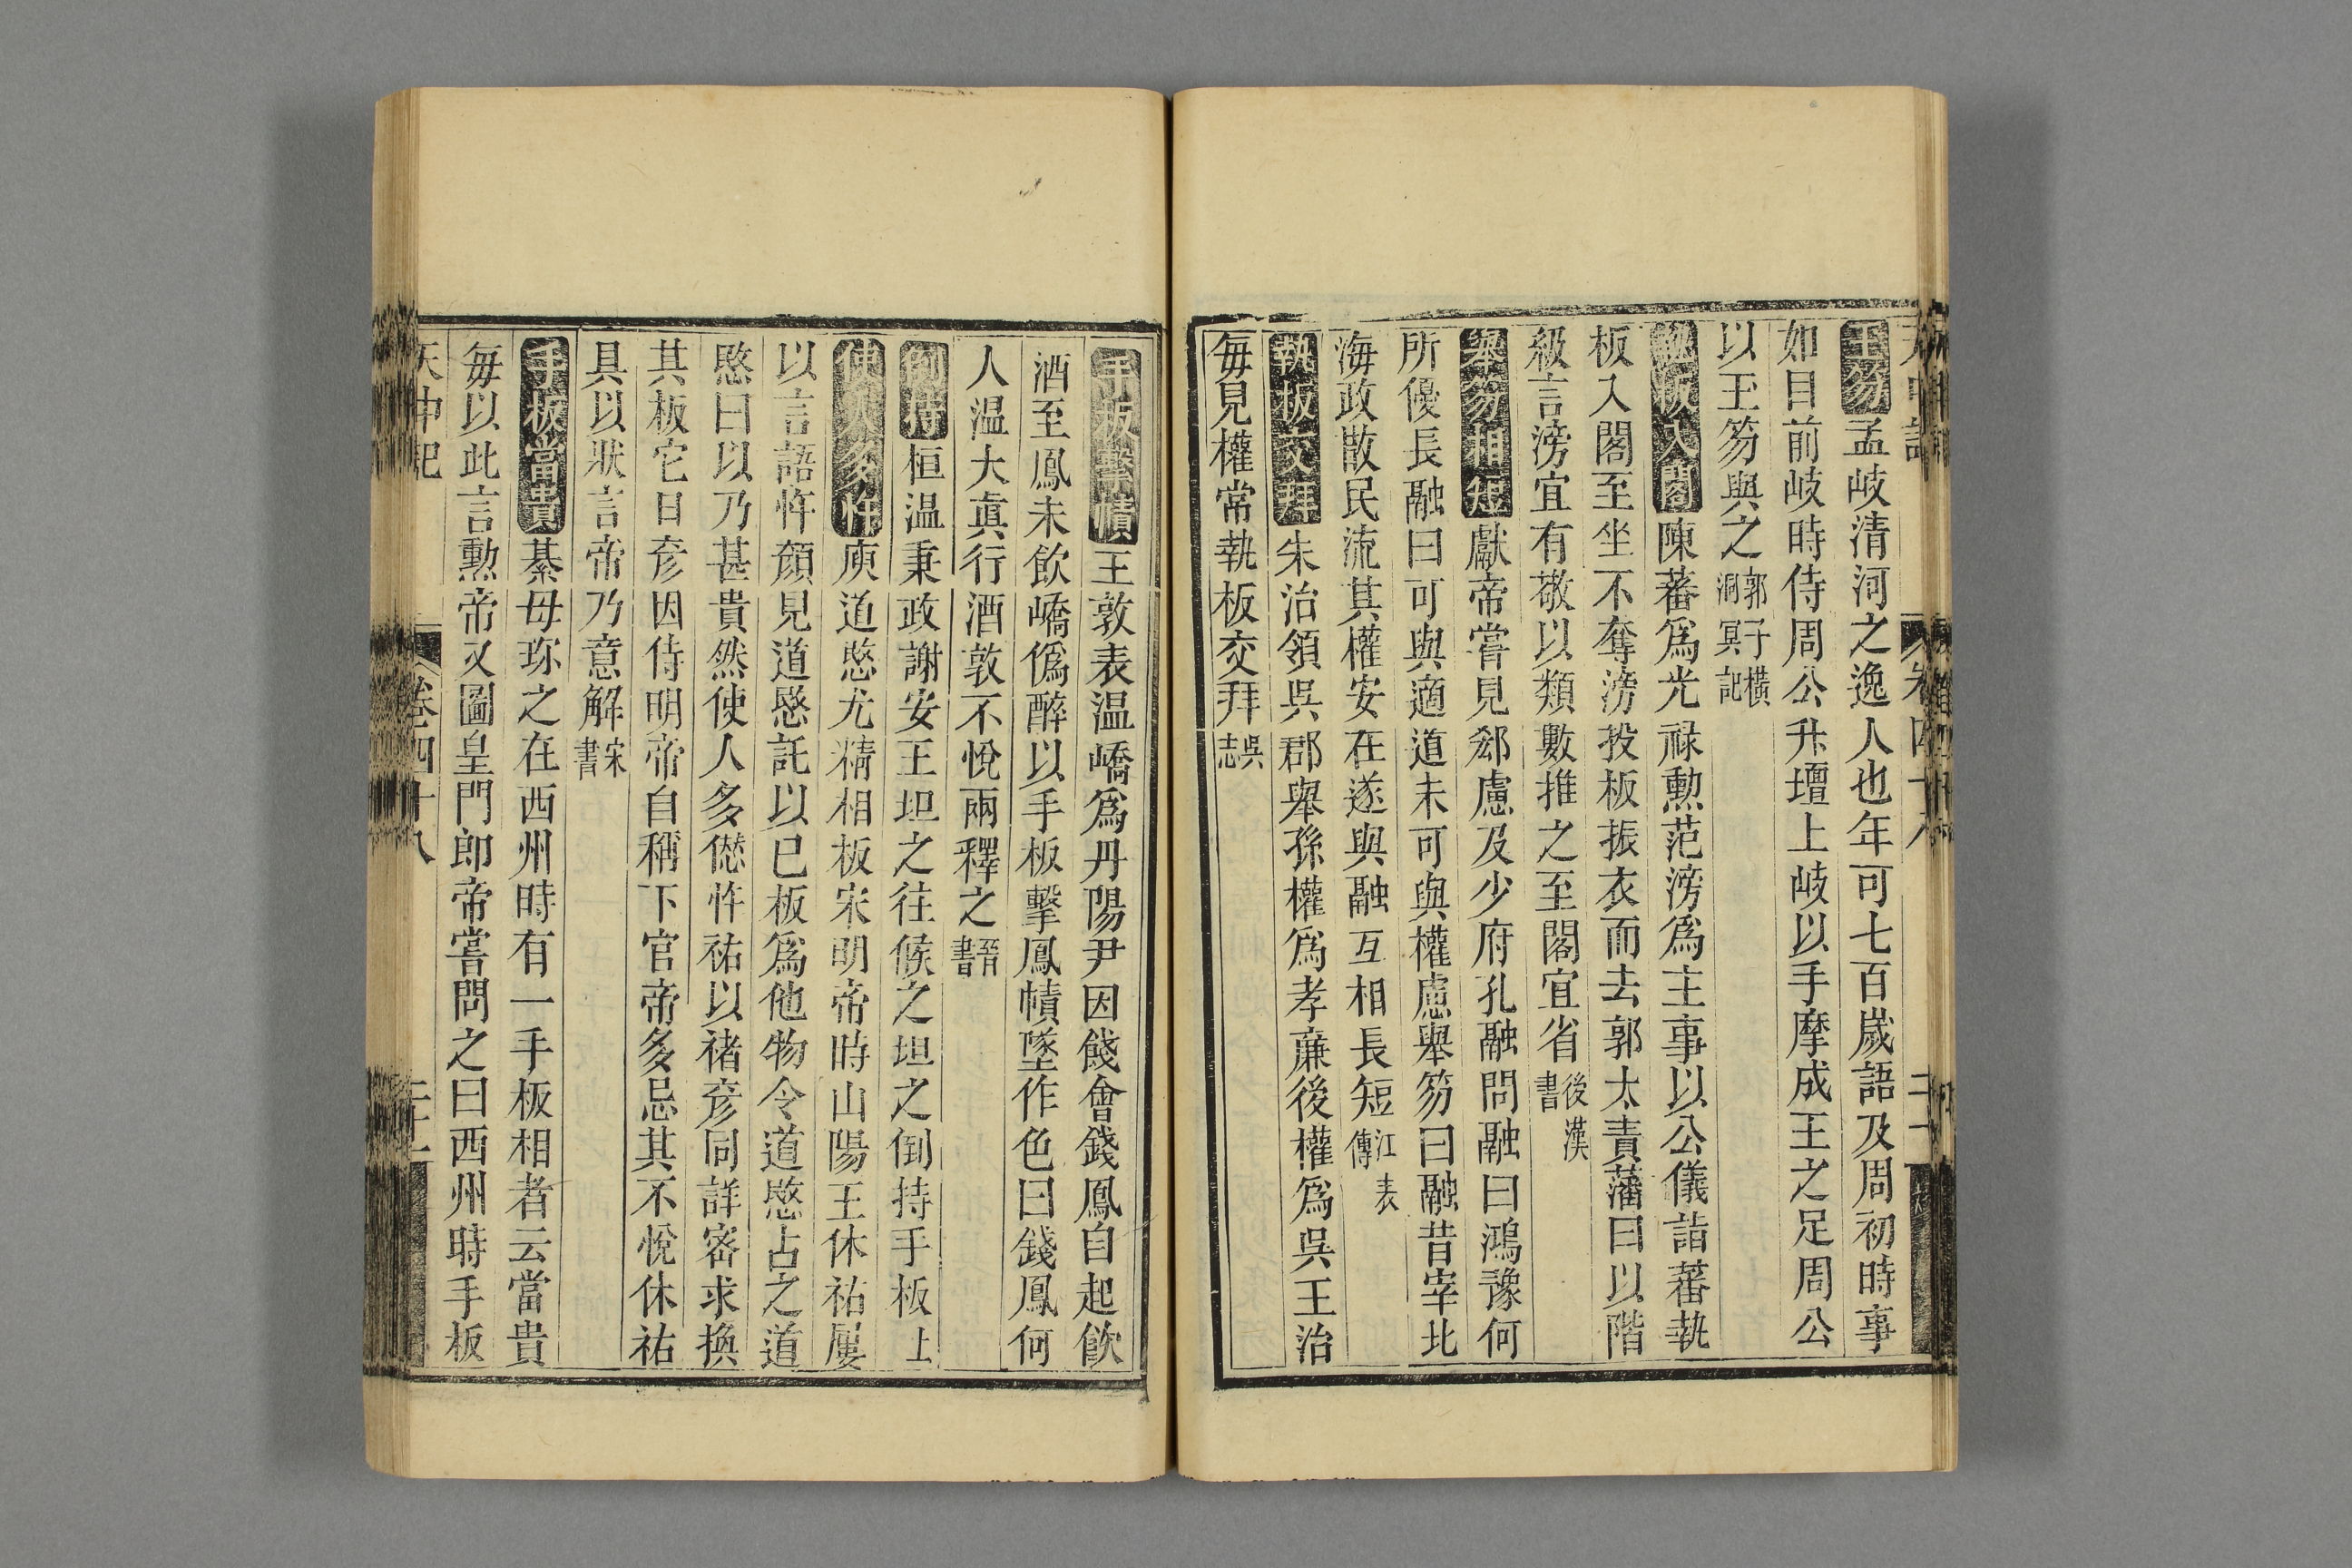 玉笏孟岐清河之逸人也年可七百歲語及周初時事
如目前岐時侍周公升壇上岐以手摩成王之足周公
以玉笏與之郭子橫洞冥記
執板入閣陳蕃爲光祿勲范滂爲主事以公儀詣蕃執
板入閣至坐不奪滂投板振衣而去郭太責藩曰以階
級言滂宜有敬以類數推之至閣宜省後漢書
舉笏相短獻帝嘗見郄慮及少府孔融問融曰鴻豫何
所優長融曰可與適道未可與權慮舉笏曰融昔宰北
海政散民流其權安在遂與融互相長短江表傳
執板交拜朱治領吳郡舉孫權爲孝廉後權爲吳王治
每見權常執板交拜吳志
手板擊幘王敦表温嶠爲丹陽尹因餞會錢鳳自起飲
酒至鳳未飲嶠僞醉以手板擊鳳幘墜作色曰錢鳳何
人温大眞行酒敦不悅兩釋之晉書
倒持桓温秉政謝安王坦之往候之坦之倒持手板上
使人多忤庾道愍尤精相板宋明帝時山陽王休祐屢
以言語忤顔見道愍託以已板爲他物令道愍占之道
愍曰以乃甚貴然使人多愆忤祐以褚彥同詳密求換
其板它日彥因侍明帝自稱下官帝多忌其不悅休祐
具以狀言帝乃意解宋書
手板當貴綦母珍之在西州時有一手板相者云當貴
每以此言勲帝又圖皇門郎帝嘗問之曰西州時手板
天中記 卷四十八